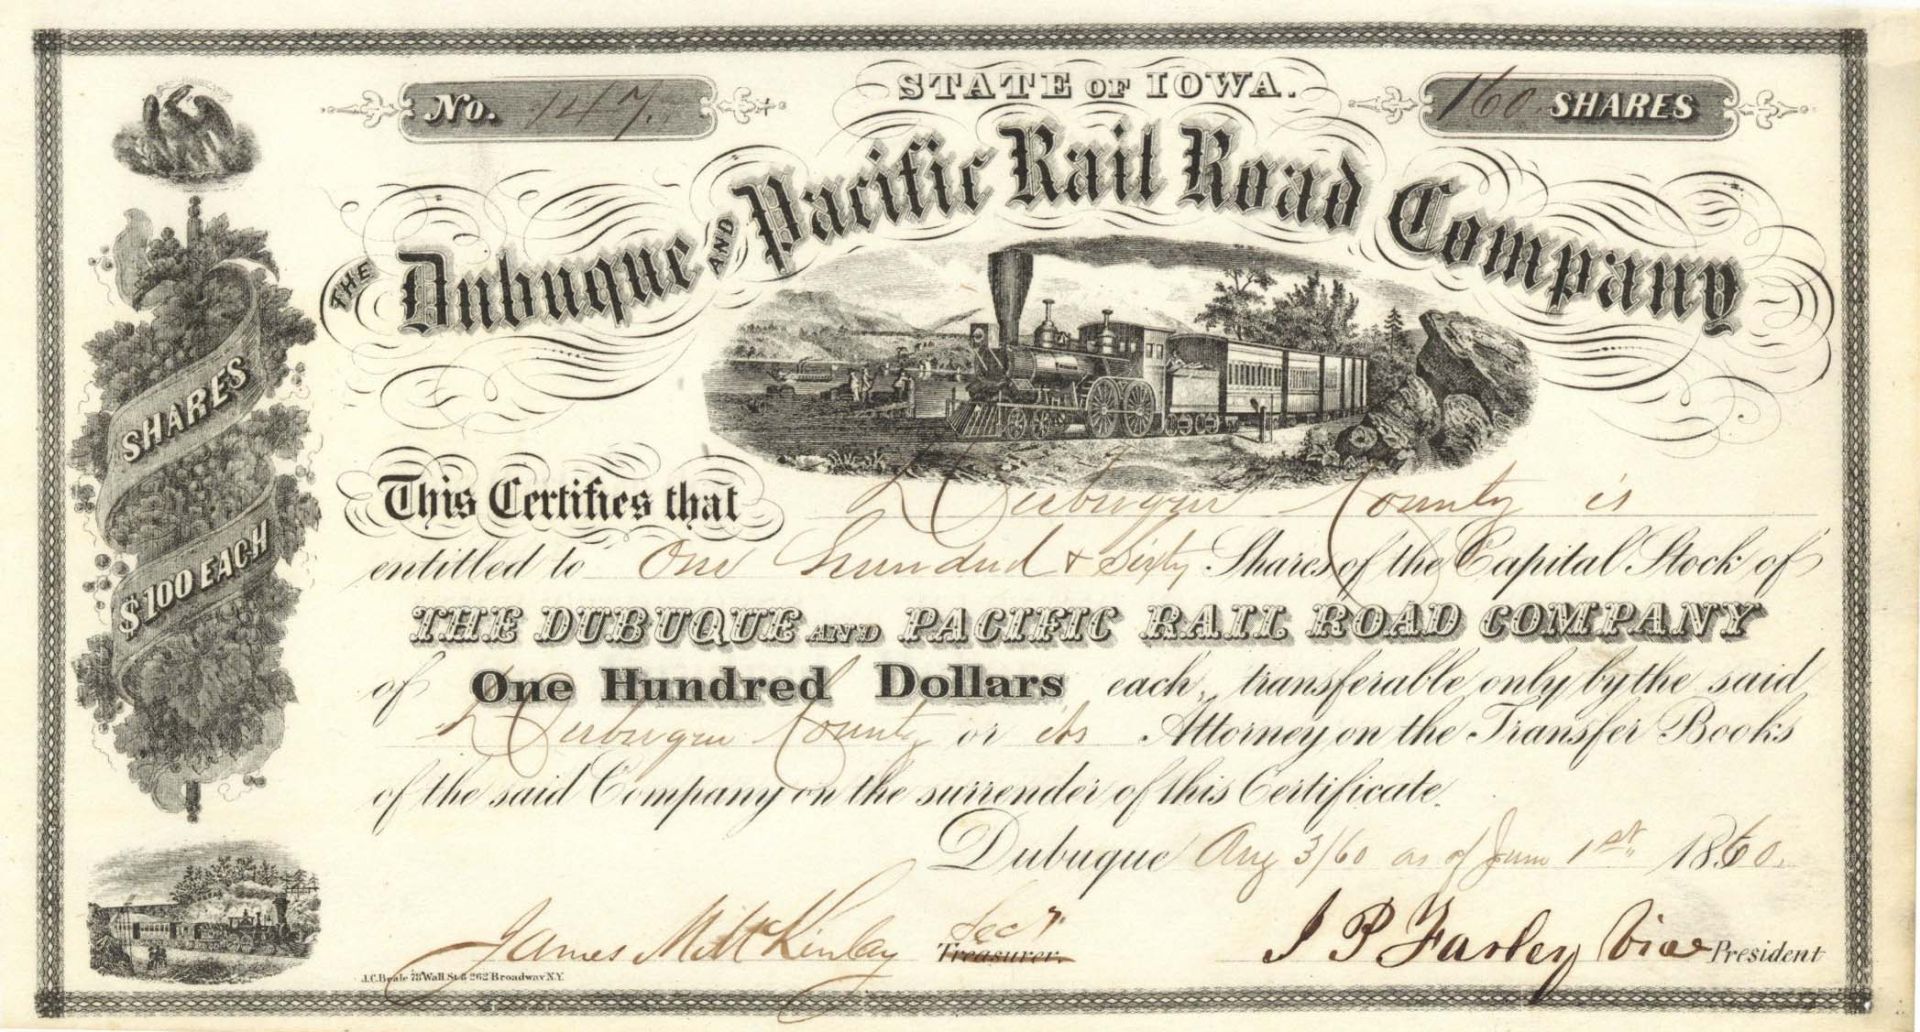 No. 147.
STATE OF IOWA.
160 SHARES
THE Dubuque AND Pacific Rail Road Company
SHARES
$100 EACH
This Certifies that Dubuque County is
entitled to One Hundred & Sixty Shares of the Capital Stock of
THE DUBUQUE AND PACIFIC RAIL ROAD COMPANY
of One Hundred Dollars each, transferable only by the said
Dubuque County or its Attorney on the Transfer Books
of the said Company on the surrender of this Certificate.
Dubuque Aug 3/60 as of June 1st 1860.
James M McKinlay Secy Treasurer.
J P Farley Vice President
J.C. Beale 78 Wall St. & 262 Broadway N.Y.